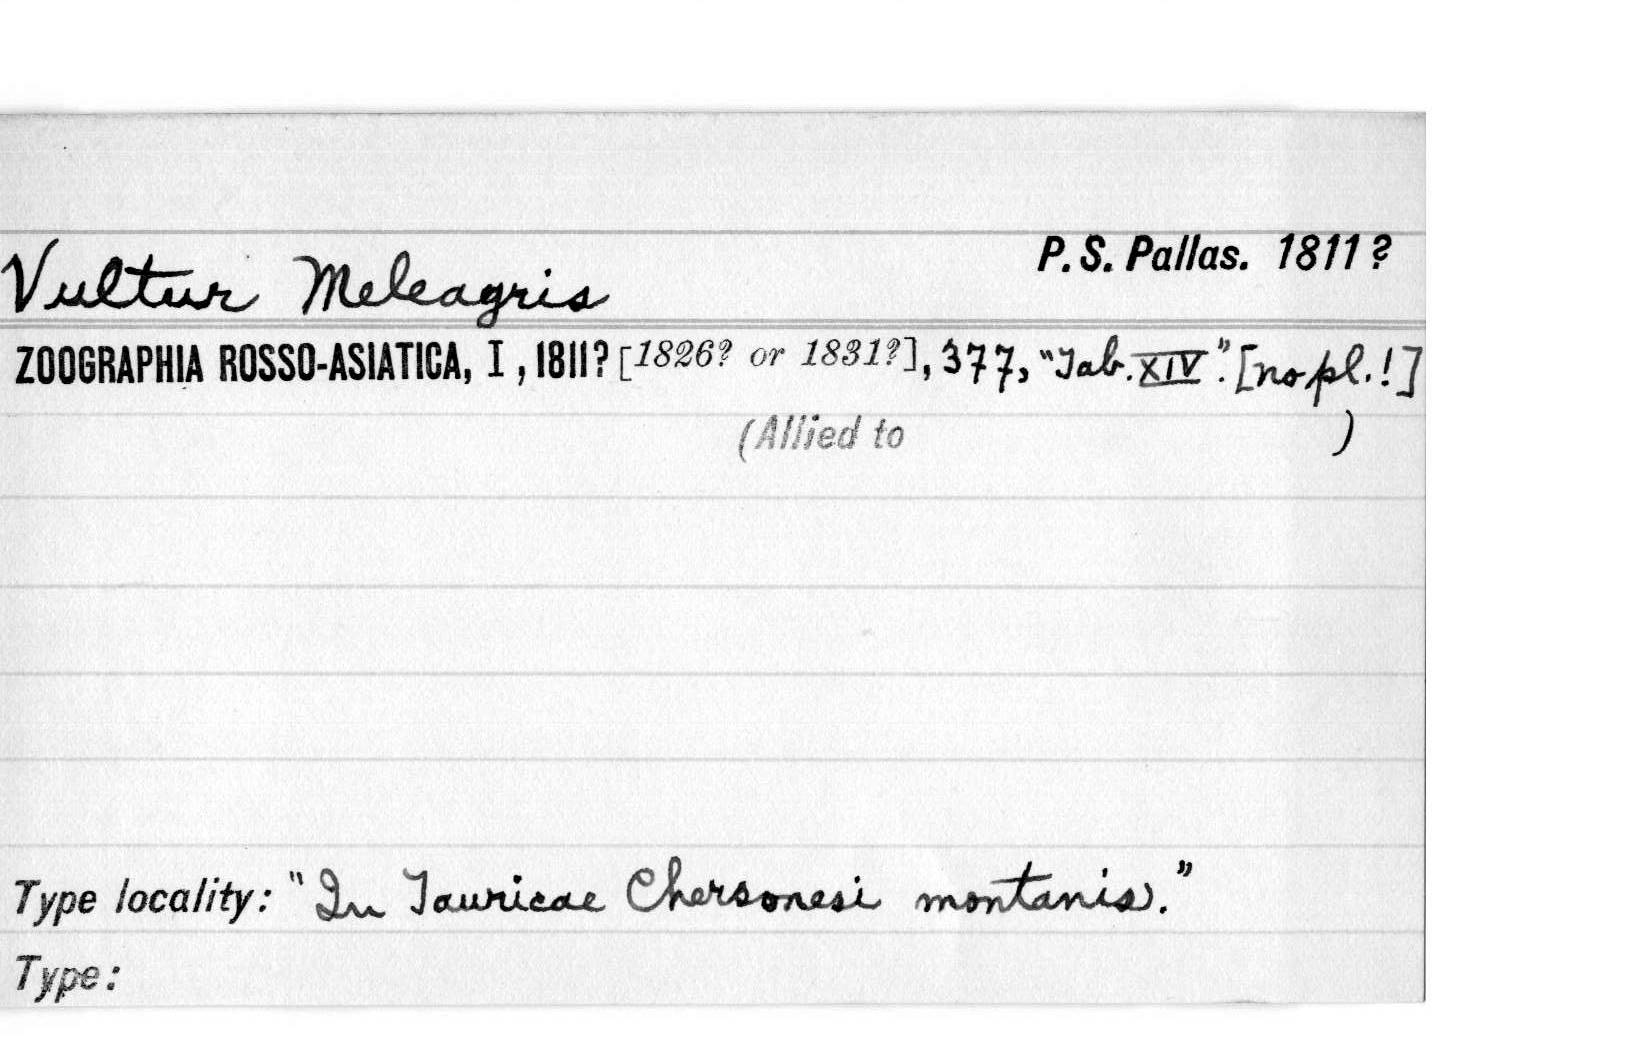 P. S. Pallas. 1811?
Vultur Meleagris
ZOOGRAPHIA ROSSO-ASIATICA, I, 1811? [1826? or 1831?], 377, "Tab. XIV". [no pl.!]
(Allied to )
Type locality: "In Tauricae Chersonesi montanis."
Type: